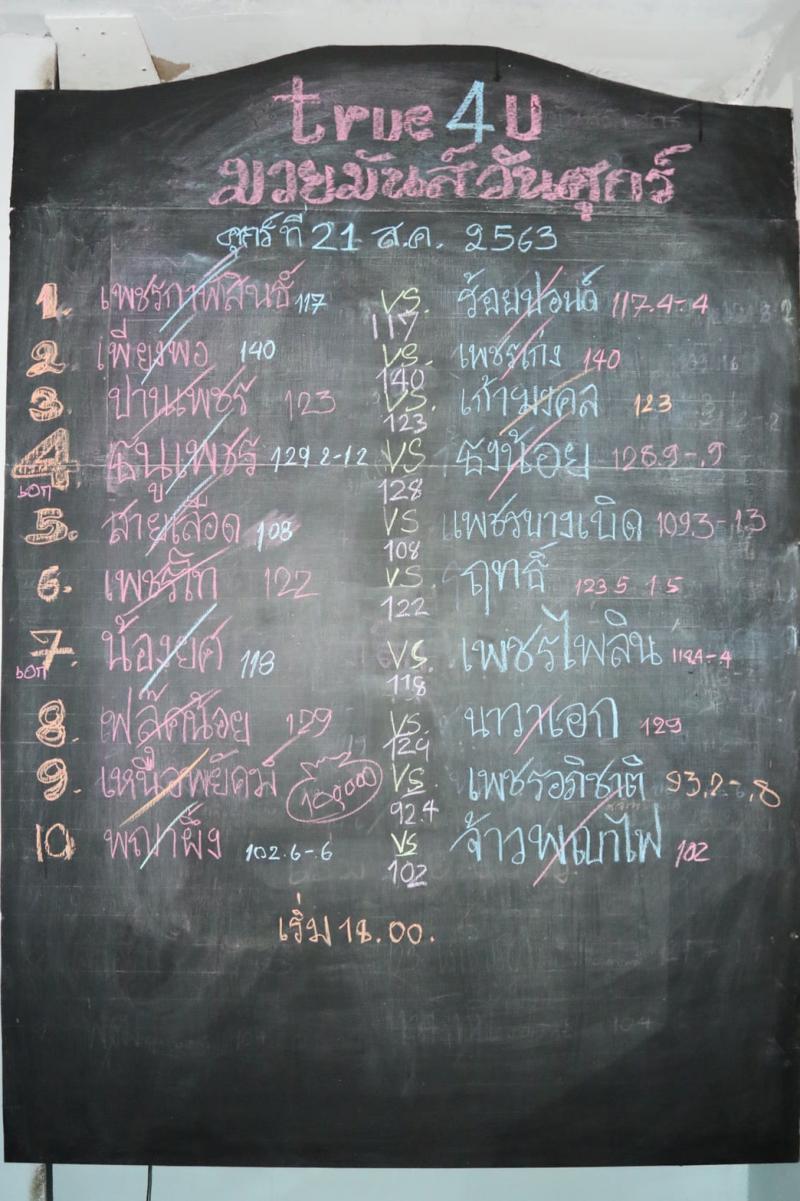 true4U
มวยมันส์วันศุกร์
ศุกร์ที่ 21 ส.ค. 2563
1. เพชรกาฬสินธ์ 117 VS. ร้อยปอนด์ 117.4-.4
117
2. เพียงพอ 140 VS. เพชรเก่ง 140
140
3. ปานเพชร 123 VS. เก้ามงคล 123
123
4 ธนูเพชร 129 2-1.2 VS ธงน้อย 128.9-.9
เอก 128
5. สายเลือด 108 VS เพชรบางเบิด 109.3-1.3
108
6. เพชรโก 122 VS. ฤทธิ์ 123.5 1.5
122
7. น้องยศ 118 VS. เพชรไพลิน 118.4-.4
เอก 118
8. ฟลุ๊คน้อย 129 VS. นาวาเอก 129
129
9. เหนือพยัคฆ์ 100,000 VS เพชรอภิชาติ 93.2-.8
92.4
10 พญาผึ้ง 102.6-.6 VS จ้าวพญาไฟ 102
102
เริ่ม 18.00.